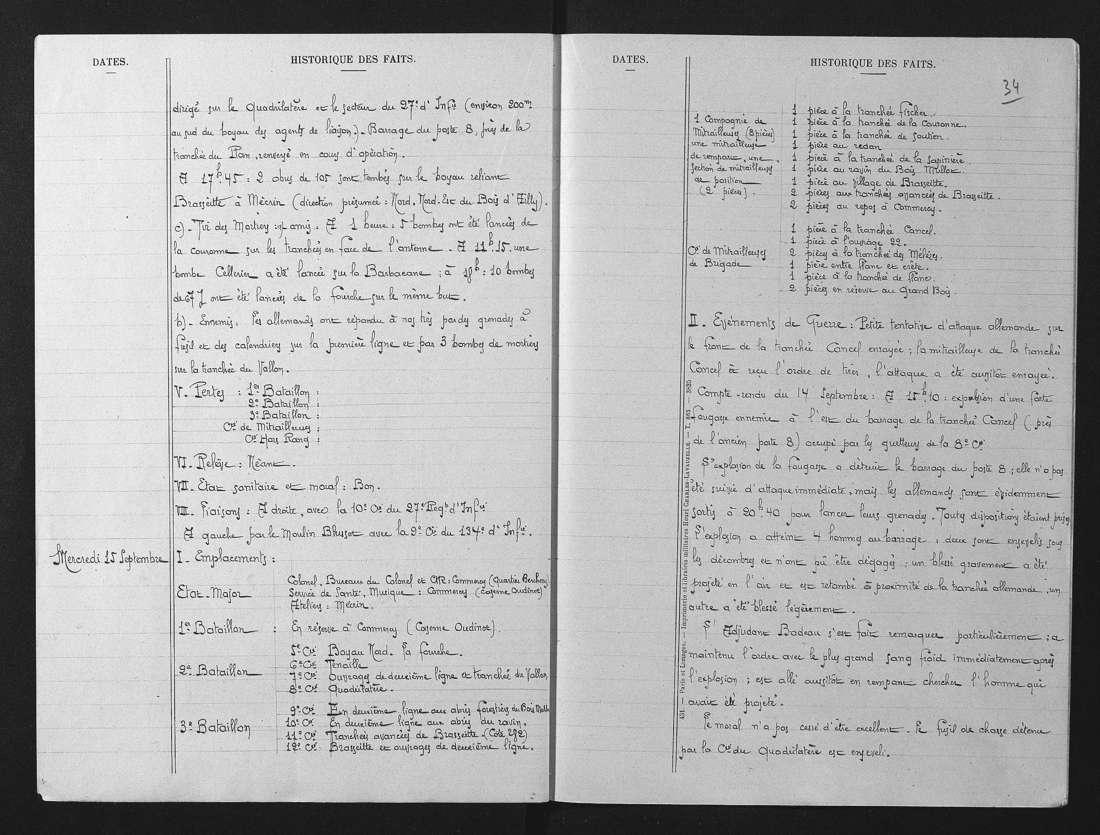 DATES.
HISTORIQUE DES FAITS.
dirigé sur le Quadrilatère et le secteur du 27e d'Infie (environ 200m
au sud du boyau des agents de liaison). Barrage du poste 8, près de la
tranchée du Plan, renversé en cours d'opération.
A 17h.45 : 2 obus de 105 sont tombés sur le boyau reliant
Brasseitte à Mécrin (direction présumée : Nord, Nord-Est du Bois d'Ailly).
c) - Tir des Mortiers : a/ amis : A 1 heure : 5 bombes ont été lancées de
la couronne sur les tranchées en face de l'antenne. A 11h15, une
bombe Cellerier a été lancée sur la Barbacane ; à 18h : 10 bombes
de 67 ont été lancées de la fourche sur le même but.
b) - Ennemis : Les allemands ont répondu à nos tirs par des grenades à
fusil et des calendriers sur la première ligne et par 3 bombes de mortiers
sur la tranchée du Vallon.
V - Pertes : 1er Bataillon :
2e Bataillon :
3e Bataillon :
Cie de Mitrailleuses :
Cie Hors Rang :
VI - Relève : Néant.
VII - Etat sanitaire et moral : Bon.
VIII - Liaisons : A droite, avec la 10e Cie du 27e Régt d'Infie
A gauche par le Moulin Bhussot avec la 9e Cie du 134e d'Infie.
Mercredi 15 Septembre
I - Emplacements :
Etat-Major
Colonel, Bureau du Colonel et CHR : Commercy (Quartier Bercheny)
Service de Santé, Musique : Commercy (Caserne Oudinot)
Ateliers : Mécrin.
1er Bataillon : En réserve à Commercy (Caserne Oudinot).
2e Bataillon
5e Cie Boyau Nord. La fourche.
6e Cie Tenaille
7e Cie Ouvrages de deuxième ligne et tranchée du Vallon
8e Cie Quadrilatère.
3e Bataillon
9e Cie En deuxième ligne aux abris forestiers du Bois Mulot
10e Cie En deuxième ligne aux abris du ravin.
11e Cie Tranchées avancées de Brasseitte (Cote 222)
12e Cie Brasseitte et ouvrages de deuxième ligne.
DATES.
HISTORIQUE DES FAITS.
34
1 Compagnie de
Mitrailleuses (8 pièces)
une mitrailleuse
de rempart, une
section de mitrailleuses
de position
(2 pièces).
1 pièce à la tranchée Fischer.
1 pièce à la tranchée de la Couronne.
1 pièce à la tranchée de soutien.
1 pièce au redan
1 pièce à la tranchée de la sapinière.
1 pièce au ravin du Bois Mullot.
1 pièce au village de Brasseitte.
2 pièces aux tranchées avancées de Brasseitte
2 pièces au repos à Commercy.
Cie de Mitrailleuses
de Brigade
1 pièce à la tranchée Cancel.
1 pièce à l'ouvrage 22.
2 pièces à la tranchée des Mélèzes.
1 pièce entre Blanc et crête.
1 pièce à la tranchée de Blanc.
2 pièces en réserve au Grand Bois.
II - Evénements de Guerre : Petite tentative d'attaque allemande sur
le front de la tranchée Cancel enrayée ; la mitrailleuse de la tranchée
Cancel a reçu l'ordre de tirer, l'attaque a été aussitôt enrayée.
Compte-rendu du 14 Septembre : A 15h,10 : explosion d'une forte
fougasse ennemie à l'est du barrage de la tranchée Cancel (près
de l'ancien poste 8) occupé par les guetteurs de la 8e Cie.
L'explosion de la fougasse a détruit le barrage du poste 8 ; elle n'a pas
été suivie d'attaque immédiate, mais les allemands sont évidemment
sortis à 20h.40 pour lancer leurs grenades. Toutes dispositions étaient prises.
L'explosion a atteint 4 hommes au barrage ; deux sont ensevelis sous
les décombres et n'ont pu être dégagés ; un blessé gravement a été
projeté en l'air et est retombé à proximité de la tranchée allemande, un
autre a été blessé légèrement.
L'Adjudant Badeau s'est fait remarquer particulièrement ; a
maintenu l'ordre avec le plus grand sang froid immédiatement après
l'explosion ; est allé aussitôt en rampant chercher l'homme qui
avait été projeté.
Le moral n'a pas cessé d'être excellent. Le fusil de chasse détenu
par la Cie du Quadrilatère est enseveli.
431. — Paris et Limoges. — Imprimerie et librairie militaires Henri CHARLES-LAVAUZELLE. — T. 263